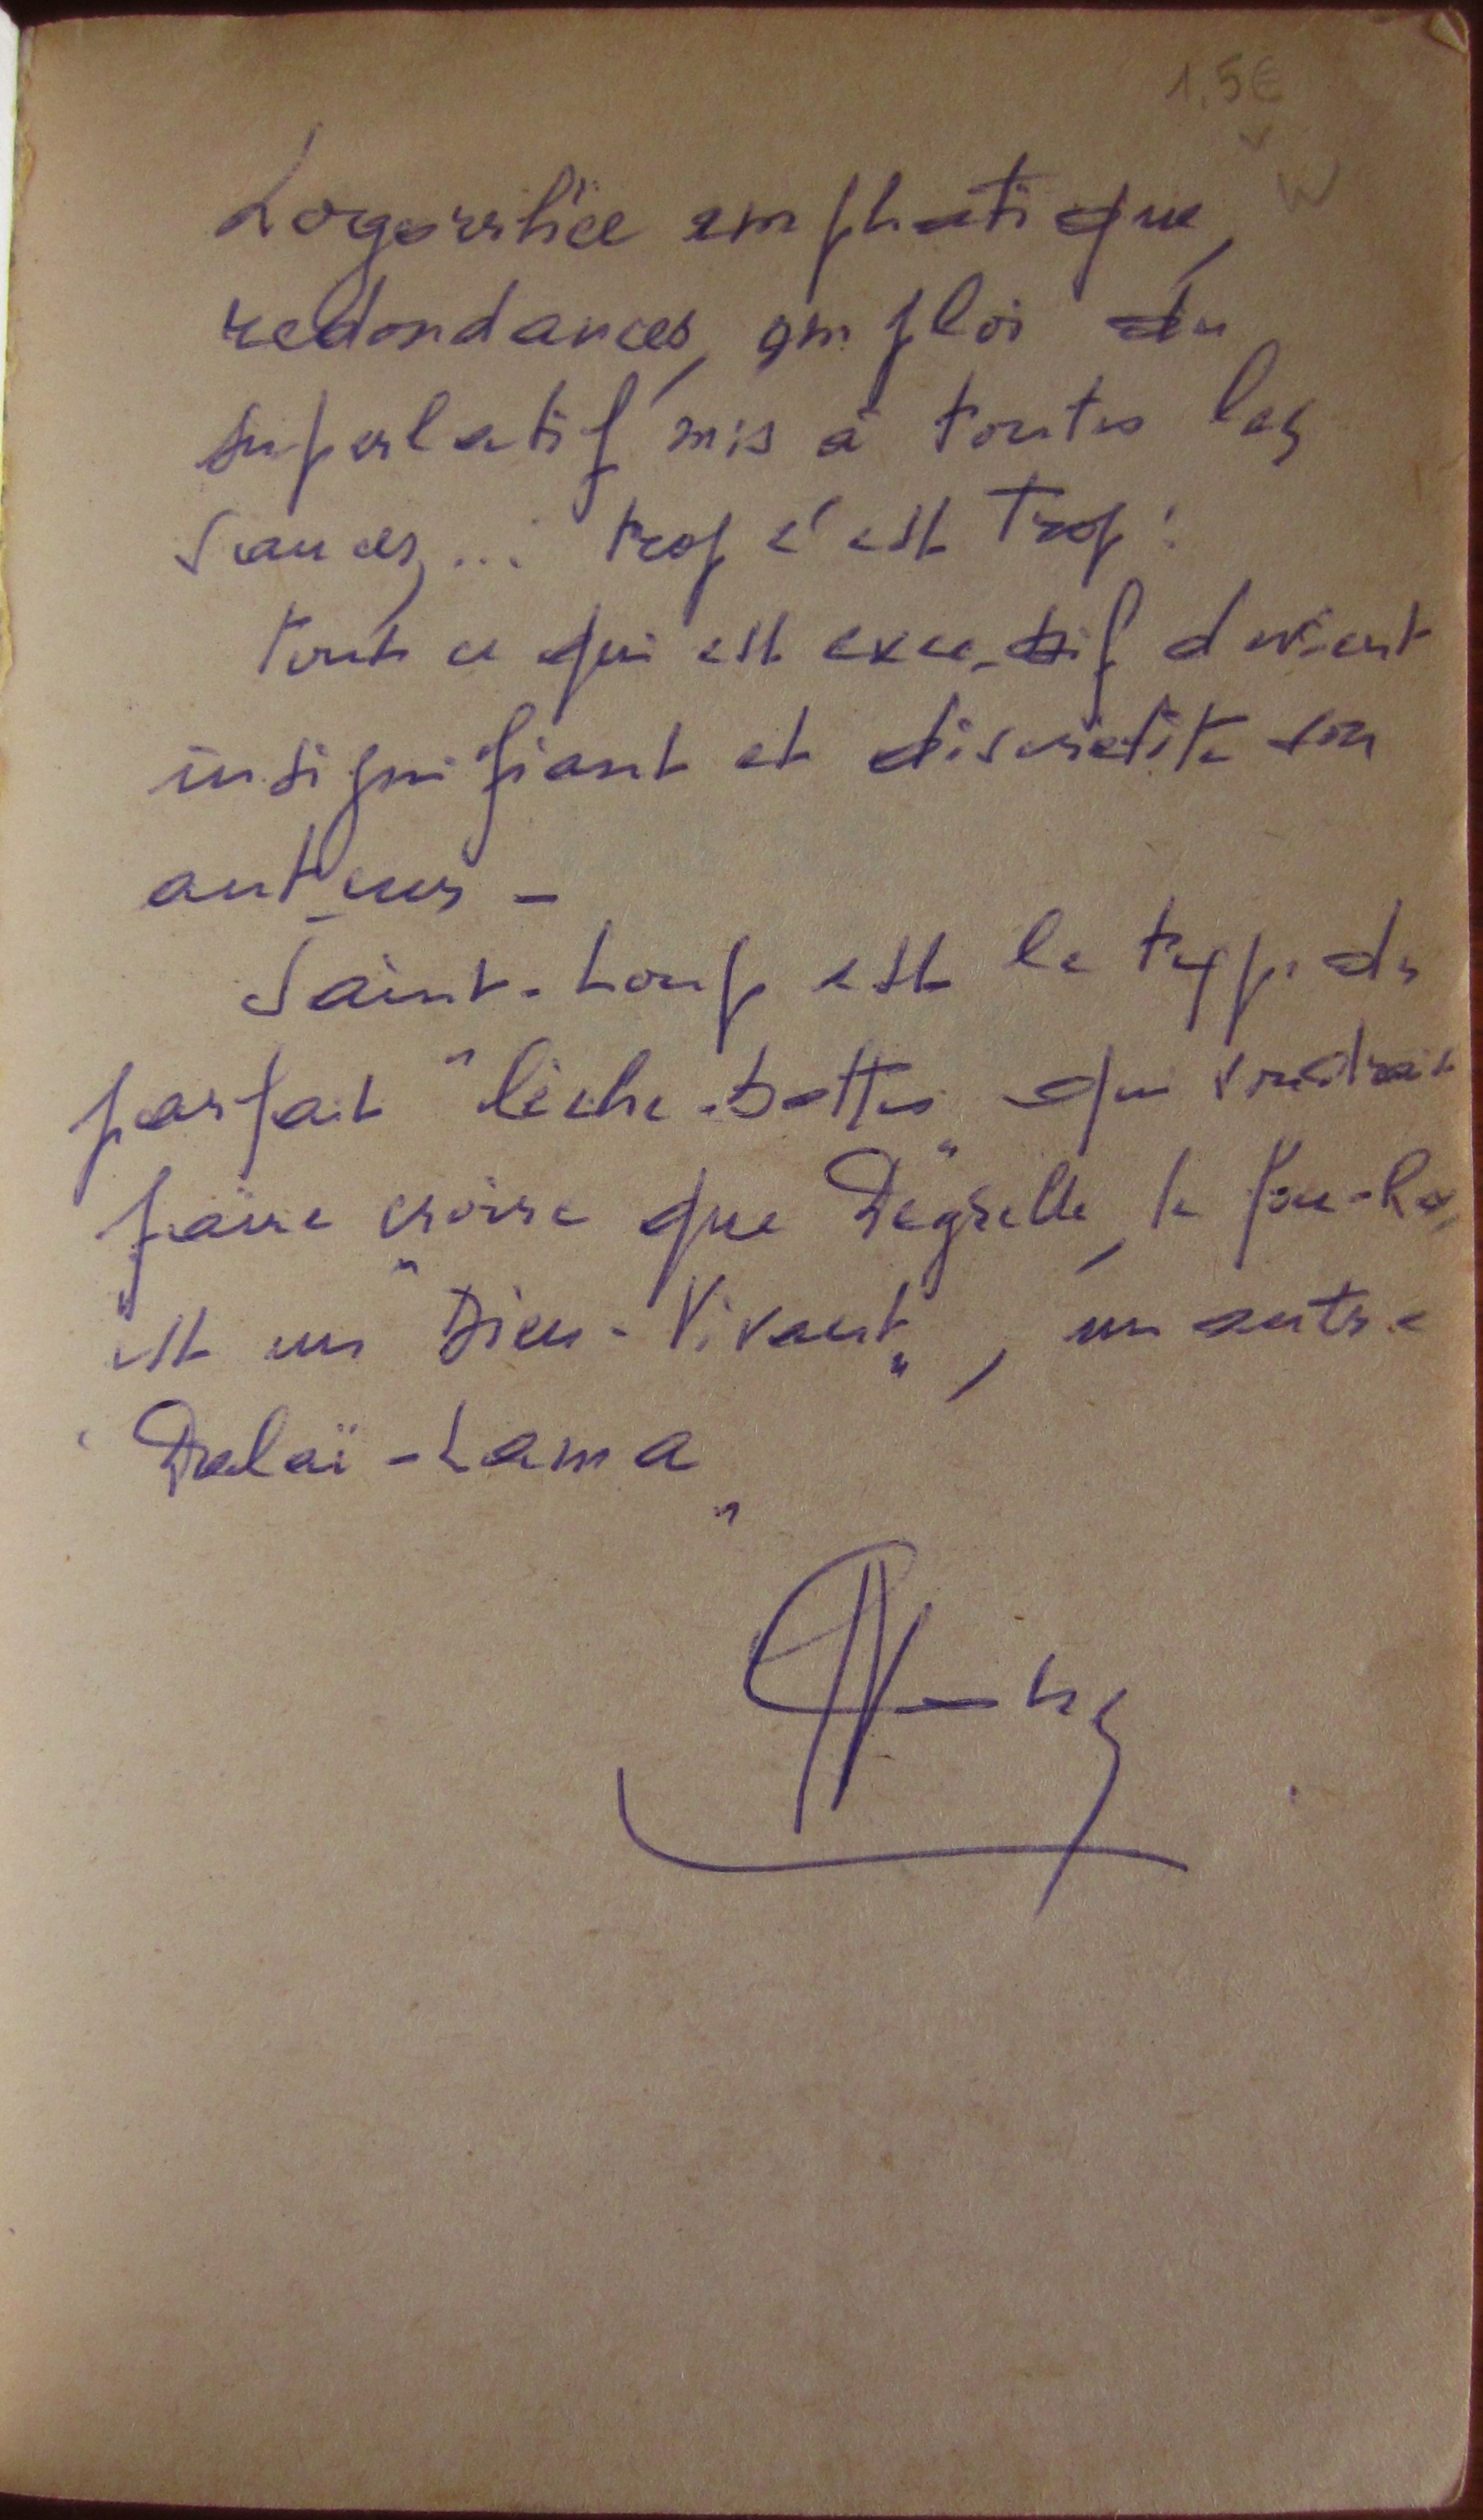 1,5€
W
Logorrhée emphatique,
redondances, emploi du
superlatif mis à toutes les
sauces,... trop c'est trop!
tout ce qui est excessif devient
insignifiant et discrédite son
auteur -
Saint-Loup est le type du
parfait "lèche-bottes" qui voudrait
faire croire que Degrelle, le
est un "Dieu-Vivant", un autre
"Dalaï-Lama"